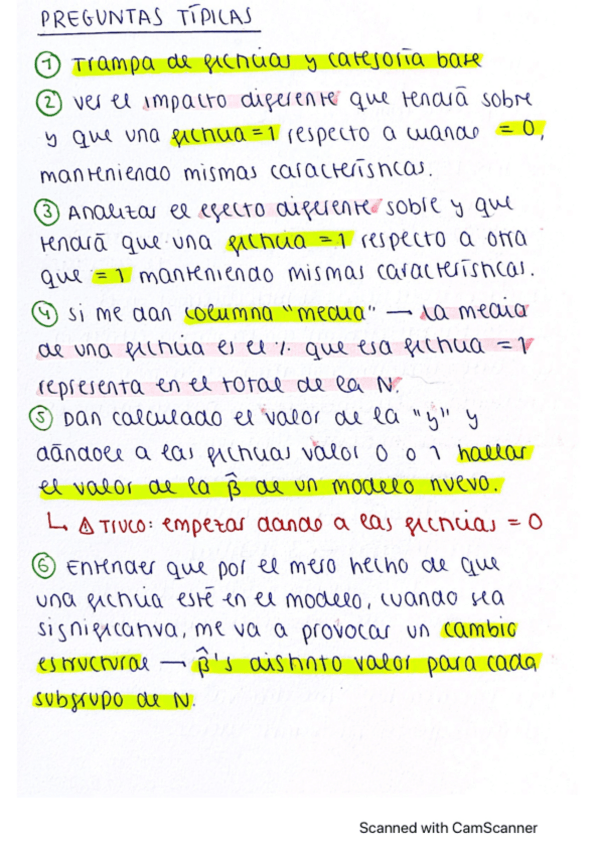 PREGUNTAS TÍPICAS
① Trampa de ficticias y categoría base
② ver el impacto diferente que tendrá sobre
y que una ficticia = 1 respecto a cuando = 0,
manteniendo mismas características.
③ Analizar el efecto diferente sobre y que
tendrá que una ficticia = 1 respecto a otra
que = 1 manteniendo mismas características.
④ si me dan columna "media" → la media
de una ficticia es el % que esa ficticia = 1
representa en el total de la N.
⑤ Dan calculado el valor de la "y" y
dándole a las ficticias valor 0 o 1 hallar
el valor de la β̂ de un modelo nuevo.
↳ ⚠ TRUCO: empezar dando a las ficticias = 0
⑥ Entender que por el mero hecho de que
una ficticia esté en el modelo, cuando sea
significativa, me va a provocar un cambio
estructural → β̂'s distinto valor para cada
subgrupo de N.
Scanned with CamScanner